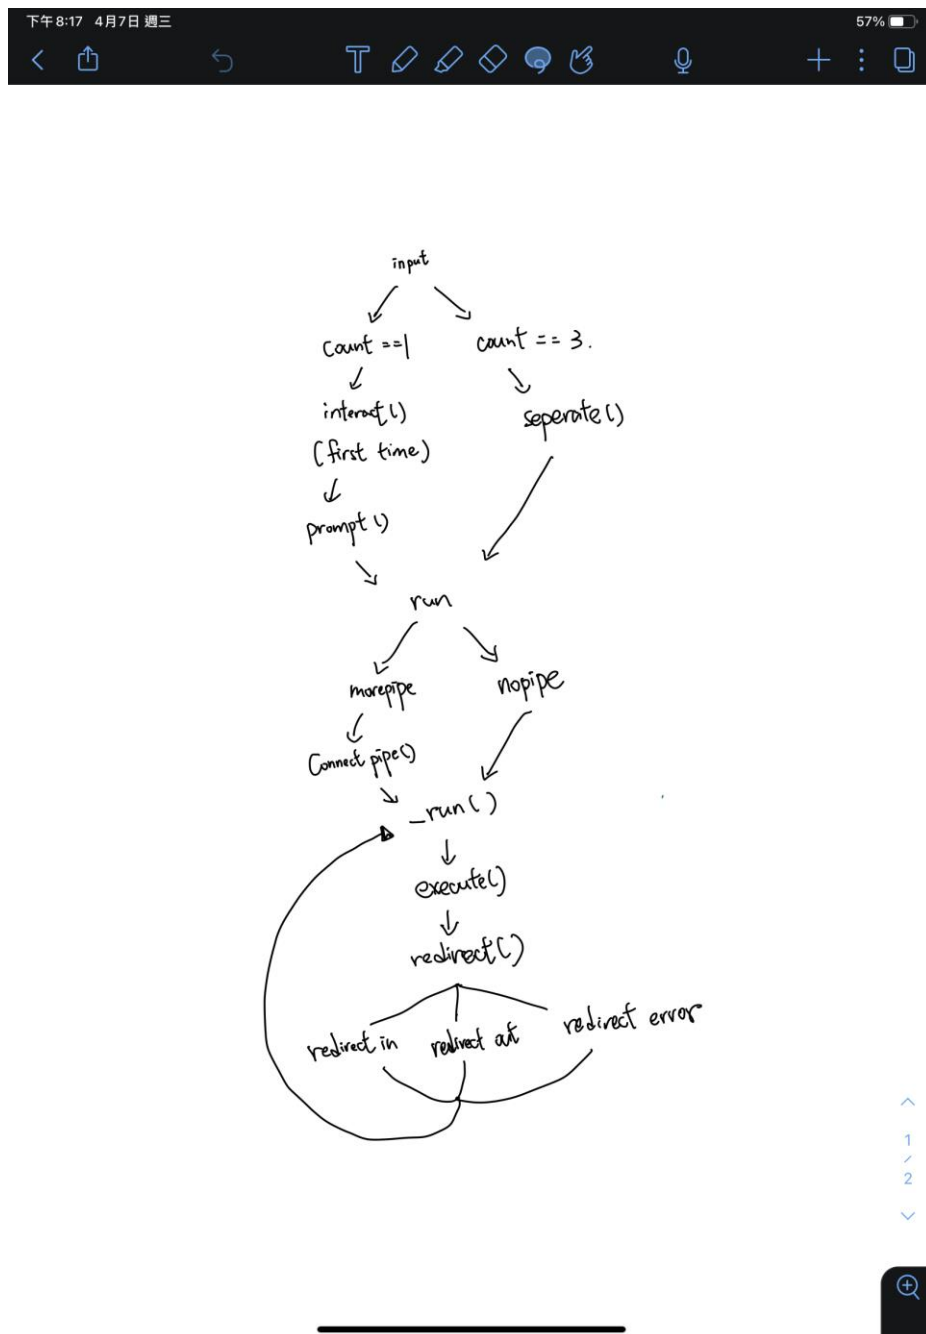 下午8:17 4月7日 週三
57%
T
input
Count ==1
count == 3.
interact()
seperate()
(first time)
prompt()
run
morepipe
nopipe
Connect pipe()
_run()
execute()
redirect()
redirect in
redirect out
redirect error
1
/
2